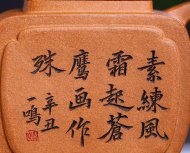 素練風
霜起蒼
鷹畫作
殊
辛丑
一鳴